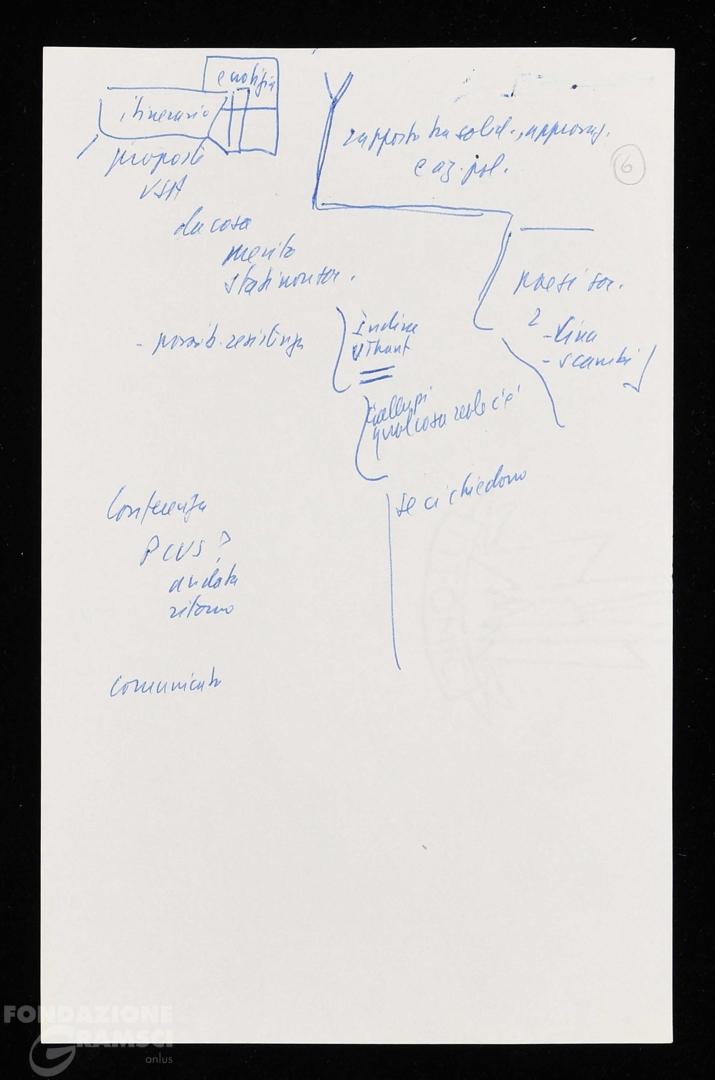 e notizie
itinerario
proposte
USA
da cosa
merito
Stati non soc.
- possib. resistenza
rapporto tra solid., approvvig.
e az. pol.
6
paesi soc.
2
- Cina
- scambi
Indira
U Thant
qualcosa se c'è
se ci chiedono
Conferenza
PCUS?
andata
ritorno
comunicato
FONDAZIONE
GRAMSCI
onlus